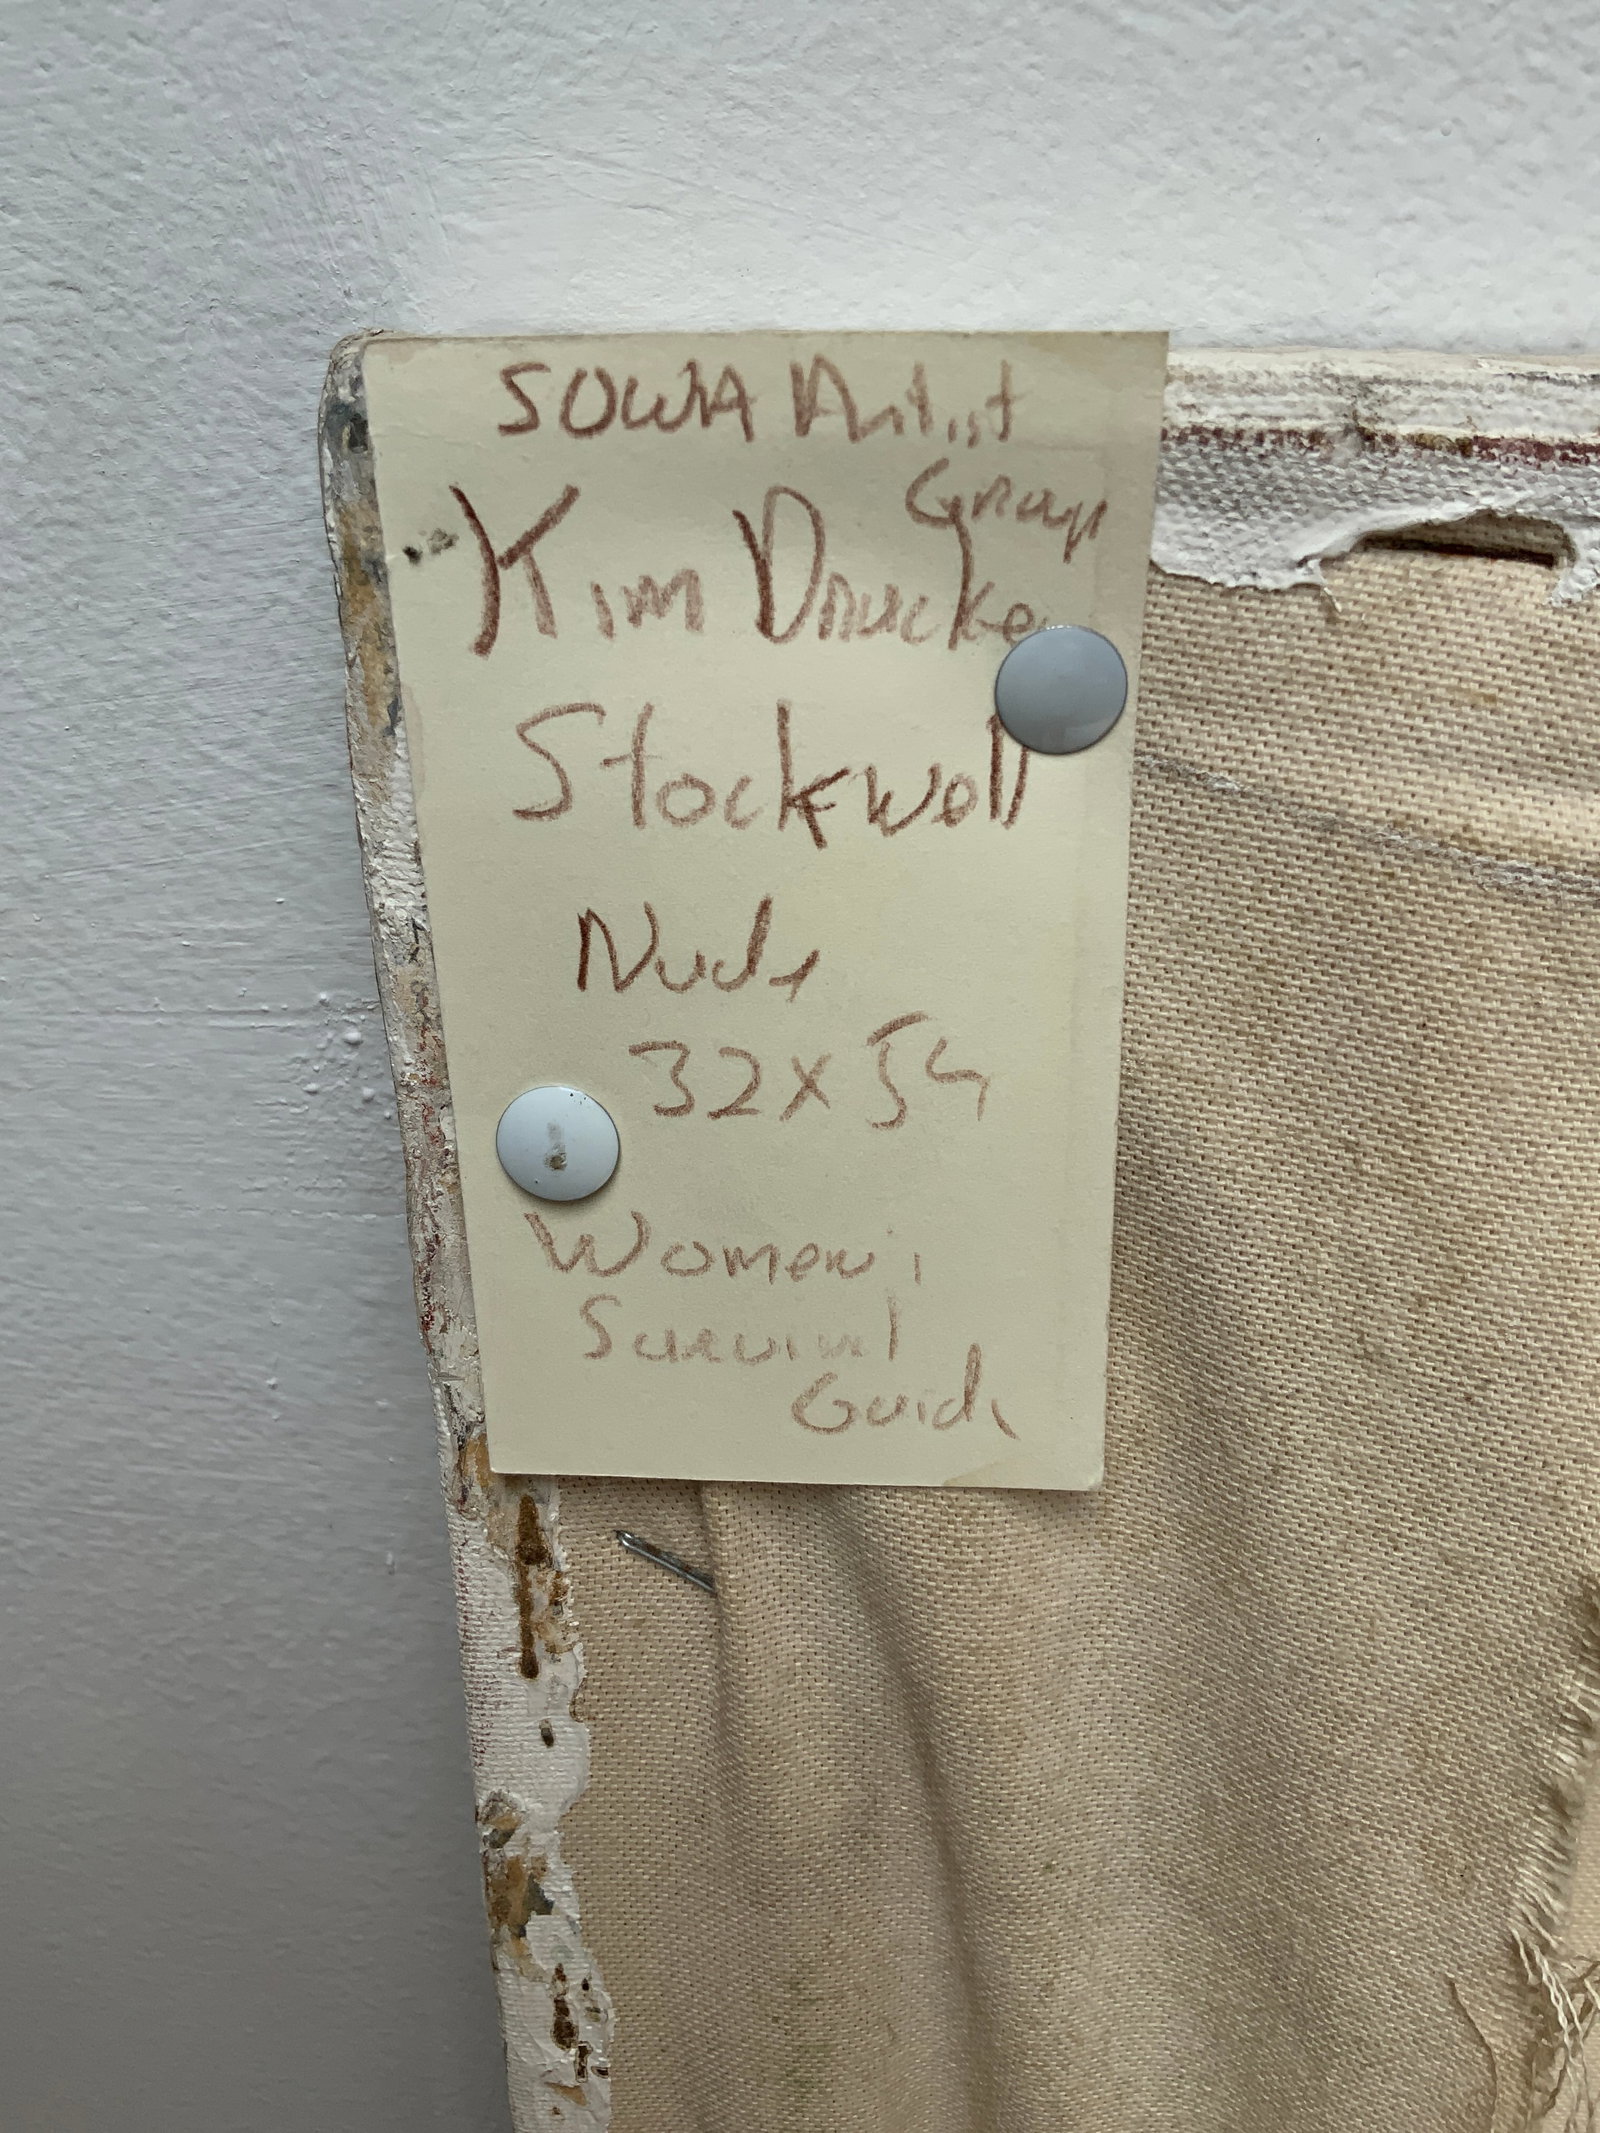 SOWA Artist
Group
Kim Drucker
Stockwell
Nude
32x54
Women's
Survival
Guide